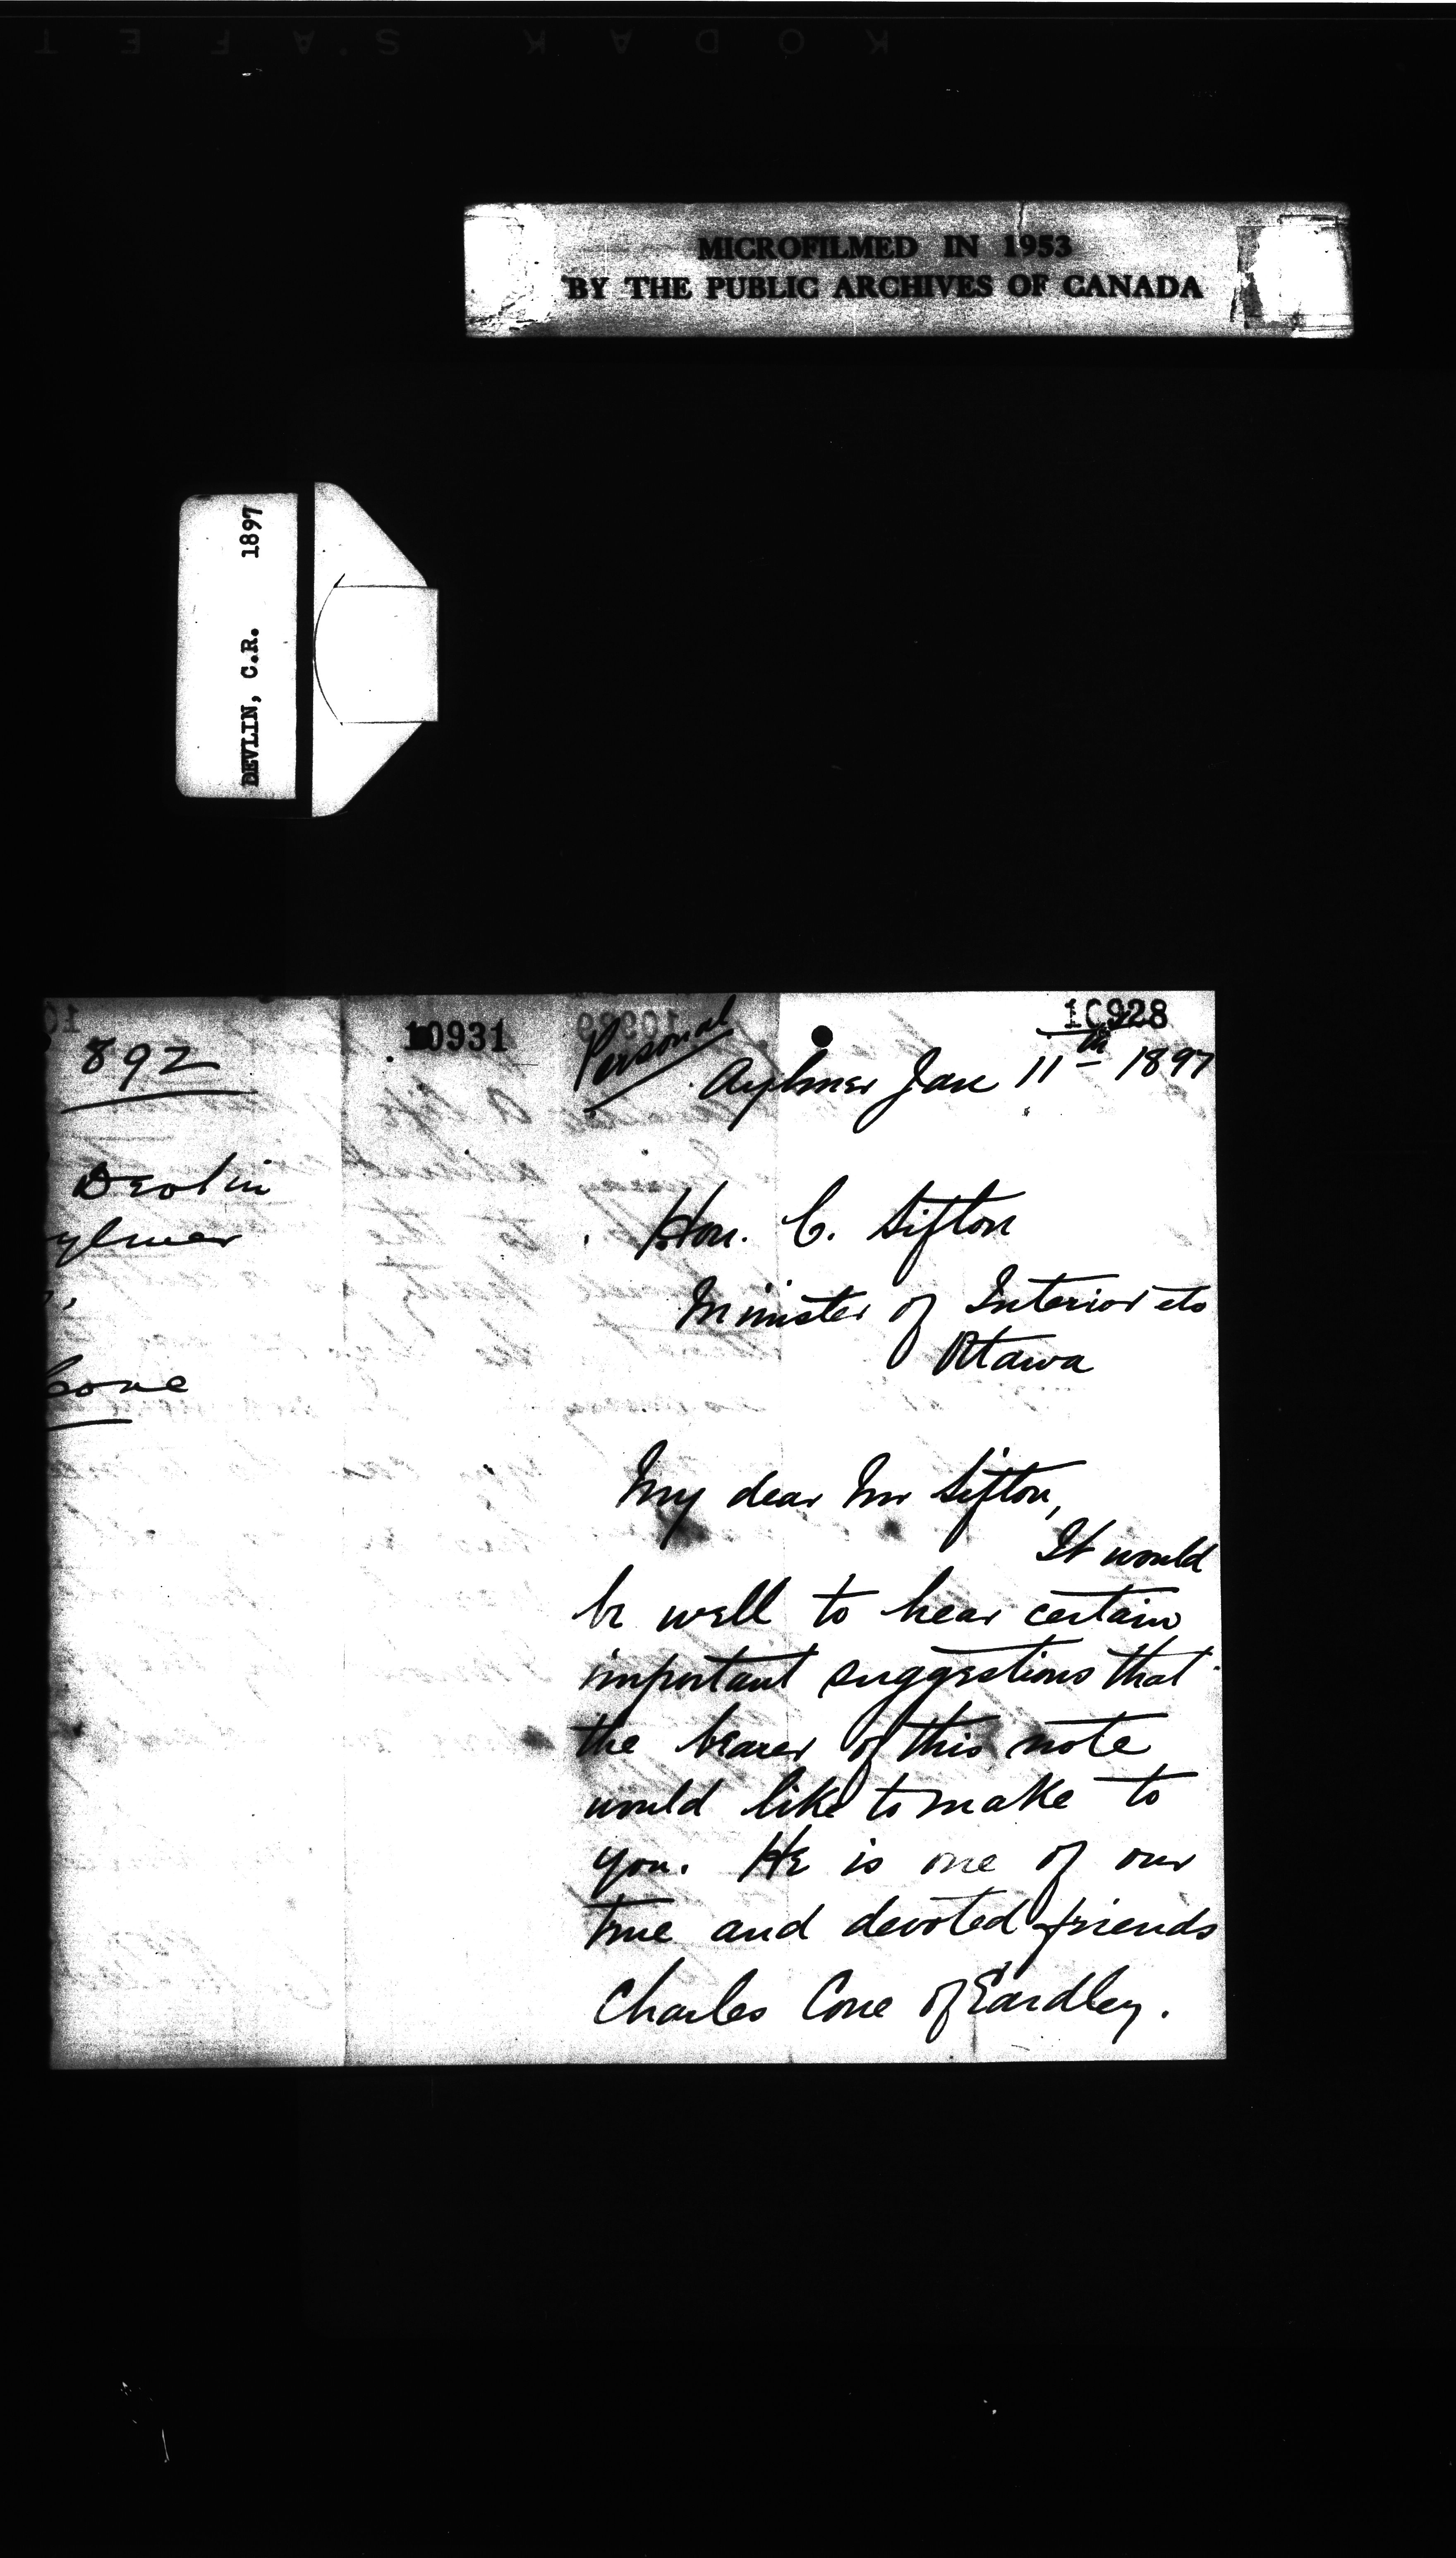 MICROFILMED IN 1953
BY THE PUBLIC ARCHIVES OF CANADA
DEVLIN, C.R. 1897
892
Devlin
ylmer
Cone
10931
10928
Personal
Aylmer Jan 11th 1897
Hon. C. Sifton
Minister of Interior etc
Ottawa
My dear Mr Sifton,
It would
be well to hear certain
important suggestions that
the bearer of this note
would like to make to
you. He is one of our
true and devoted friends
Charles Cone of Eardley.